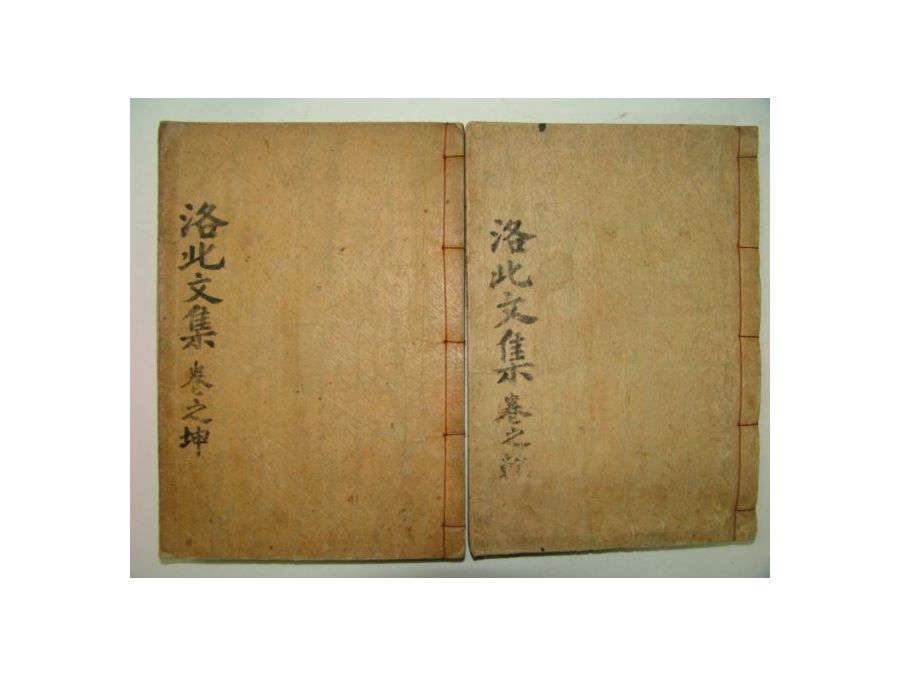 洛此文集 卷之乾
洛此文集 卷之坤